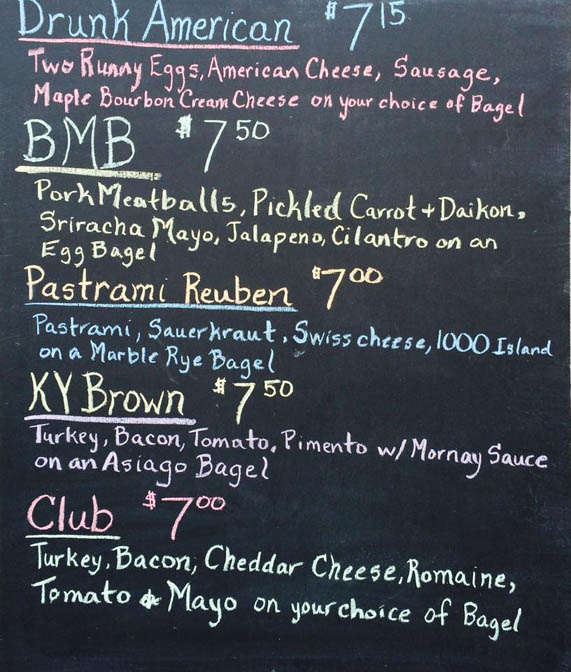 Drunk American $7 15
Two Runny Eggs, American Cheese, Sausage,
Maple Bourbon Cream Cheese on your choice of Bagel
BMB $7 50
Pork Meatballs, Pickled Carrot + Daikon,
Sriracha Mayo, Jalapeno, Cilantro on an
Egg Bagel
Pastrami Reuben $7 00
Pastrami, Sauerkraut, Swiss cheese, 1000 Island
on a Marble Rye Bagel
KY Brown $7 50
Turkey, Bacon, Tomato, Pimento w/ Mornay Sauce
on an Asiago Bagel
Club $7 00
Turkey, Bacon, Cheddar Cheese, Romaine,
Tomato & Mayo on your choice of Bagel